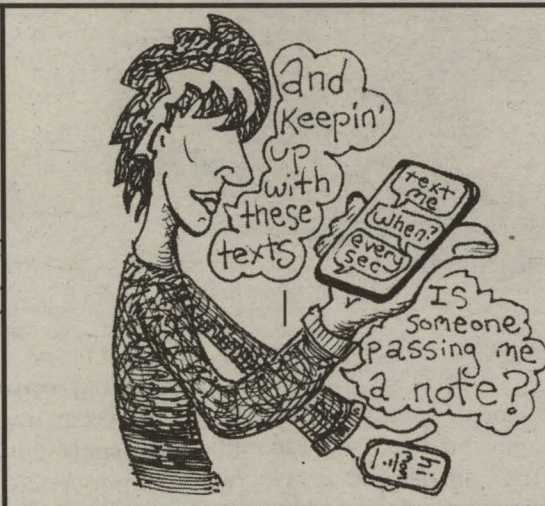 and
Keepin'
up
with
these
texts
text
me
when?
every
sec
Is
someone
passing me
a note?